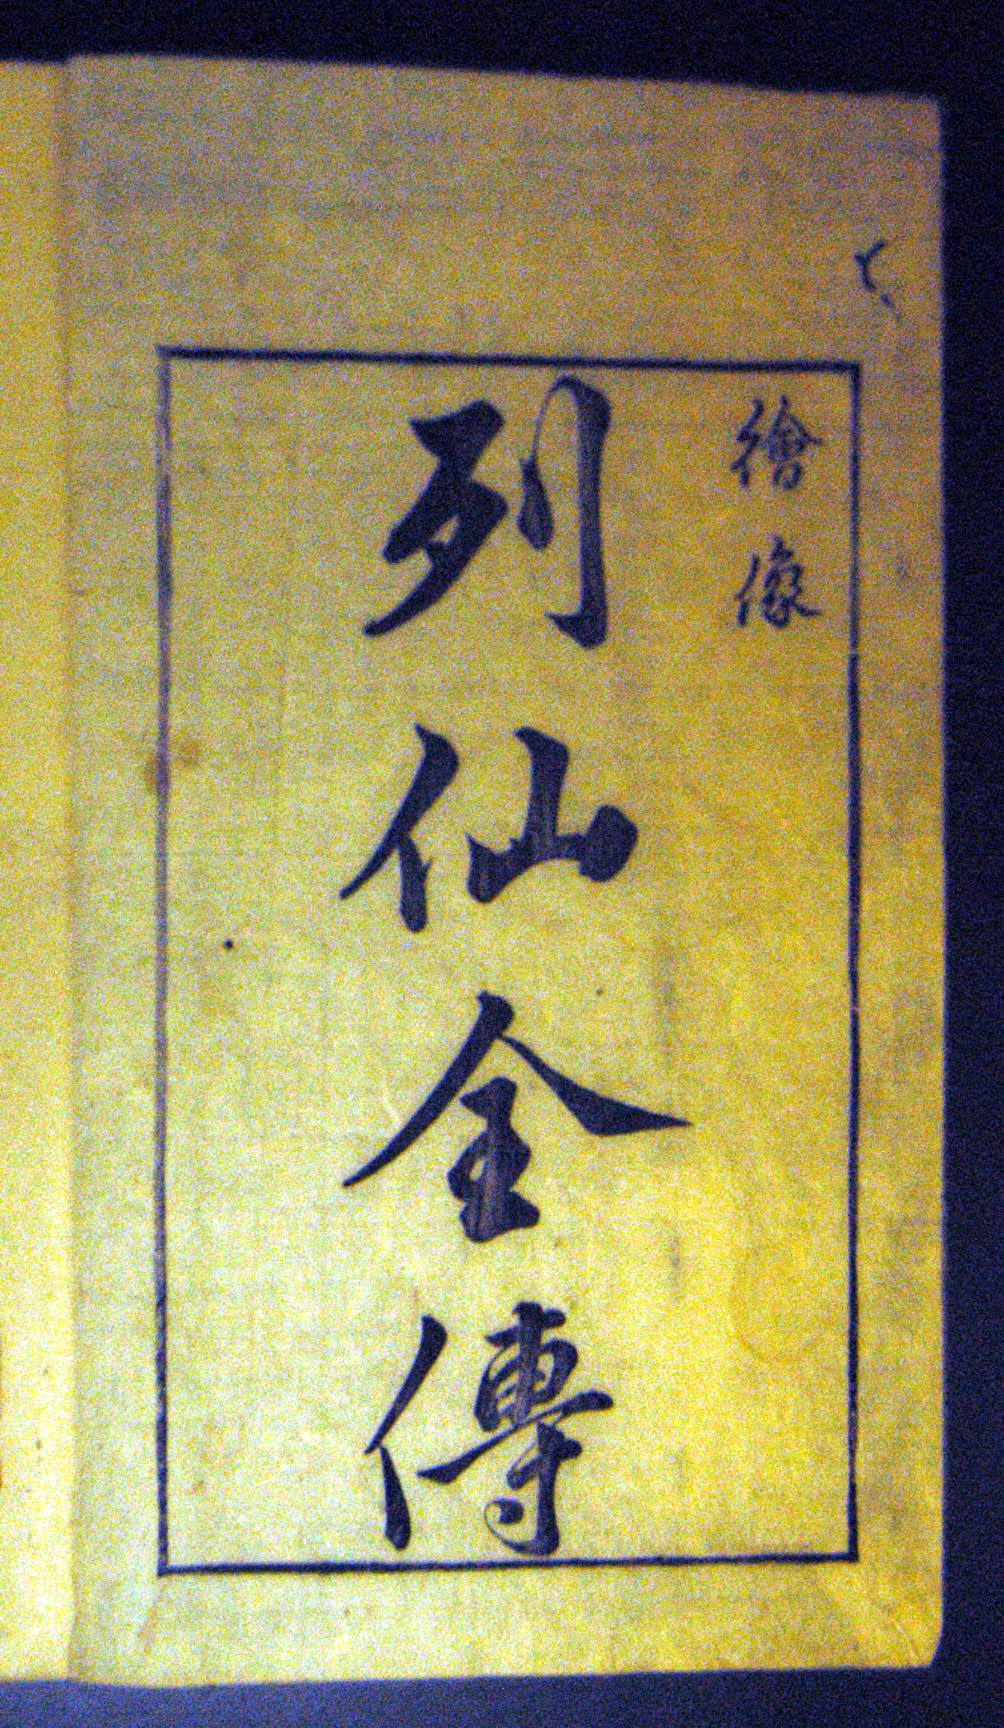 繪像
列仙全傳